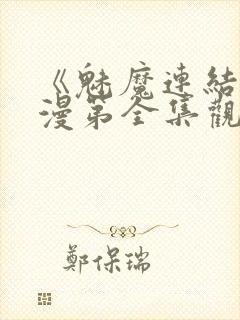 《魅魔連結
漫第全集觀
鄭保瑞